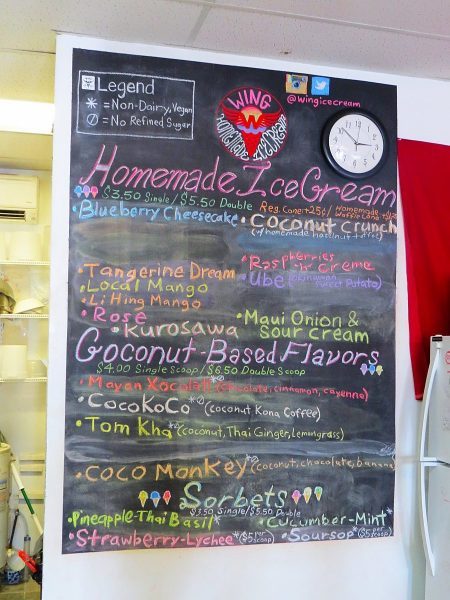 Legend
* = Non-Dairy, Vegan
Ø = No Refined Sugar
WING
HOMEMADE ICE CREAM
@wingicecream
Homemade Ice Cream
$3.50 Single / $5.50 Double Reg. Cone +25¢ / Homemade Waffle Cone
• Blueberry Cheesecake • Coconut Crunch
(w/ homemade hazelnut toffee)
• Raspberries 'n' Creme
• Tangerine Dream • Ube (Okinawan Sweet Potato)
• Local Mango
• Li Hing Mango
• Rosé • Maui Onion & Sour Cream
• Kurosawa
Coconut-Based Flavors
$4.00 Single Scoop / $6.50 Double Scoop
• Mayan Xocolatl *Ø (chocolate, cinnamon, cayenne)
• CocoKoCo *Ø (coconut Kona Coffee)
• Tom Kha *Ø (coconut, Thai Ginger, Lemongrass)
• Coco Monkey *Ø (coconut, chocolate, banana)
Sorbets
$3.50 Single / $5.50 Double
• Pineapple-Thai Basil * • Cucumber-Mint *
• Strawberry-Lychee * ($5 per scoop) • Soursop * ($5 per scoop)